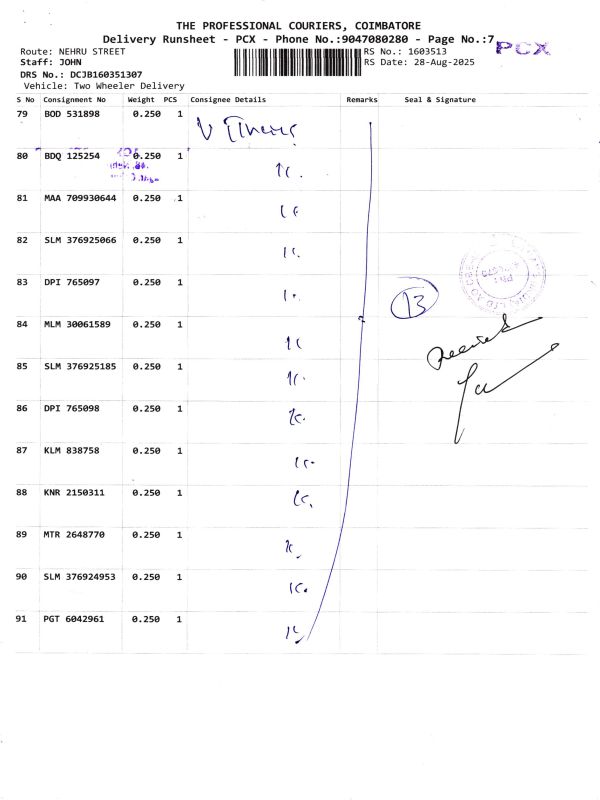 THE PROFESSIONAL COURIERS, COIMBATORE
Delivery Runsheet - PCX - Phone No.:9047080280 - Page No.:7
PCX
Route: NEHRU STREET
RS No.: 1603513
Staff: JOHN
RS Date: 28-Aug-2025
DRS No.: DCJB160351307
Vehicle: Two Wheeler Delivery
S No Consignment No Weight PCS Consignee Details Remarks Seal & Signature
79 BOD 531898 0.250 1
80 BDQ 125254 0.250 1
81 MAA 709930644 0.250 1
82 SLM 376925066 0.250 1
83 DPI 765097 0.250 1
13
84 MLM 30061589 0.250 1
85 SLM 376925185 0.250 1
86 DPI 765098 0.250 1
87 KLM 838758 0.250 1
88 KNR 2150311 0.250 1
89 MTR 2648770 0.250 1
90 SLM 376924953 0.250 1
91 PGT 6042961 0.250 1